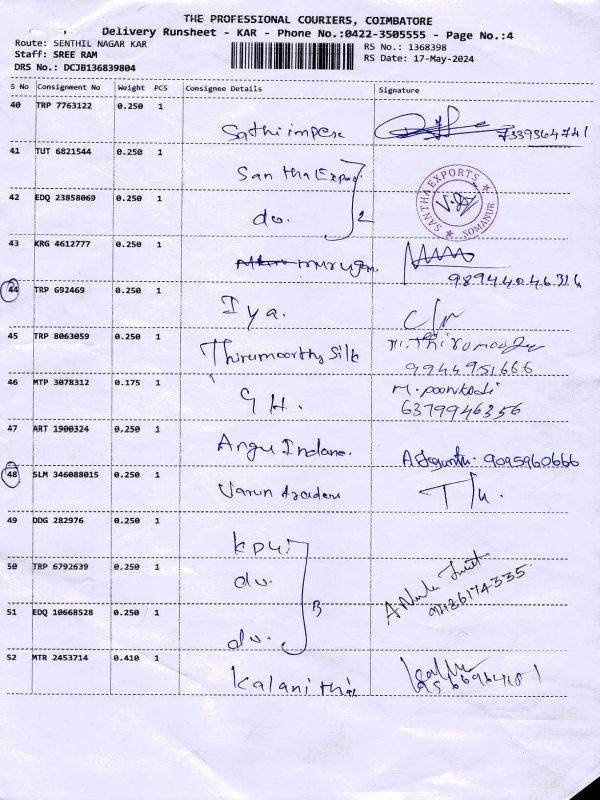 THE PROFESSIONAL COURIERS, COIMBATORE
Delivery Runsheet - KAR - Phone No.:0422-3505555 - Page No.:4
Route: SENTHIL NAGAR KAR
Staff: SREE RAM
DRS No.: DCJB136839804
RS No.: 1368398
RS Date: 17-May-2024
S No Consignment No Weight PCS Consignee Details Signature
40 TRP 7763122 0.250 1
Sathiimpex 7339364741
41 TUT 6821544 0.250 1
Santha Expo
SANTHA EXPORTS
SOMANUR
42 EDQ 23858069 0.250 1
do. 2
43 KRG 4612777 0.250 1
murugan 98944046316
44 TRP 692469 0.250 1
Iya.
45 TRP 8063059 0.250 1
Thirumoorthy Silk
9944951666
46 MTP 3078312 0.175 1
G H. M. poonkodi
6379946356
47 ART 1900324 0.250 1
Angu Indane. 9095960666
48 SLM 346088015 0.250 1
Varun
49 DDG 282976 0.250 1
50 TRP 6792639 0.250 1
do.
9486174335
51 EDQ 10668528 0.250 1
do. 3
52 MTR 2453714 0.410 1